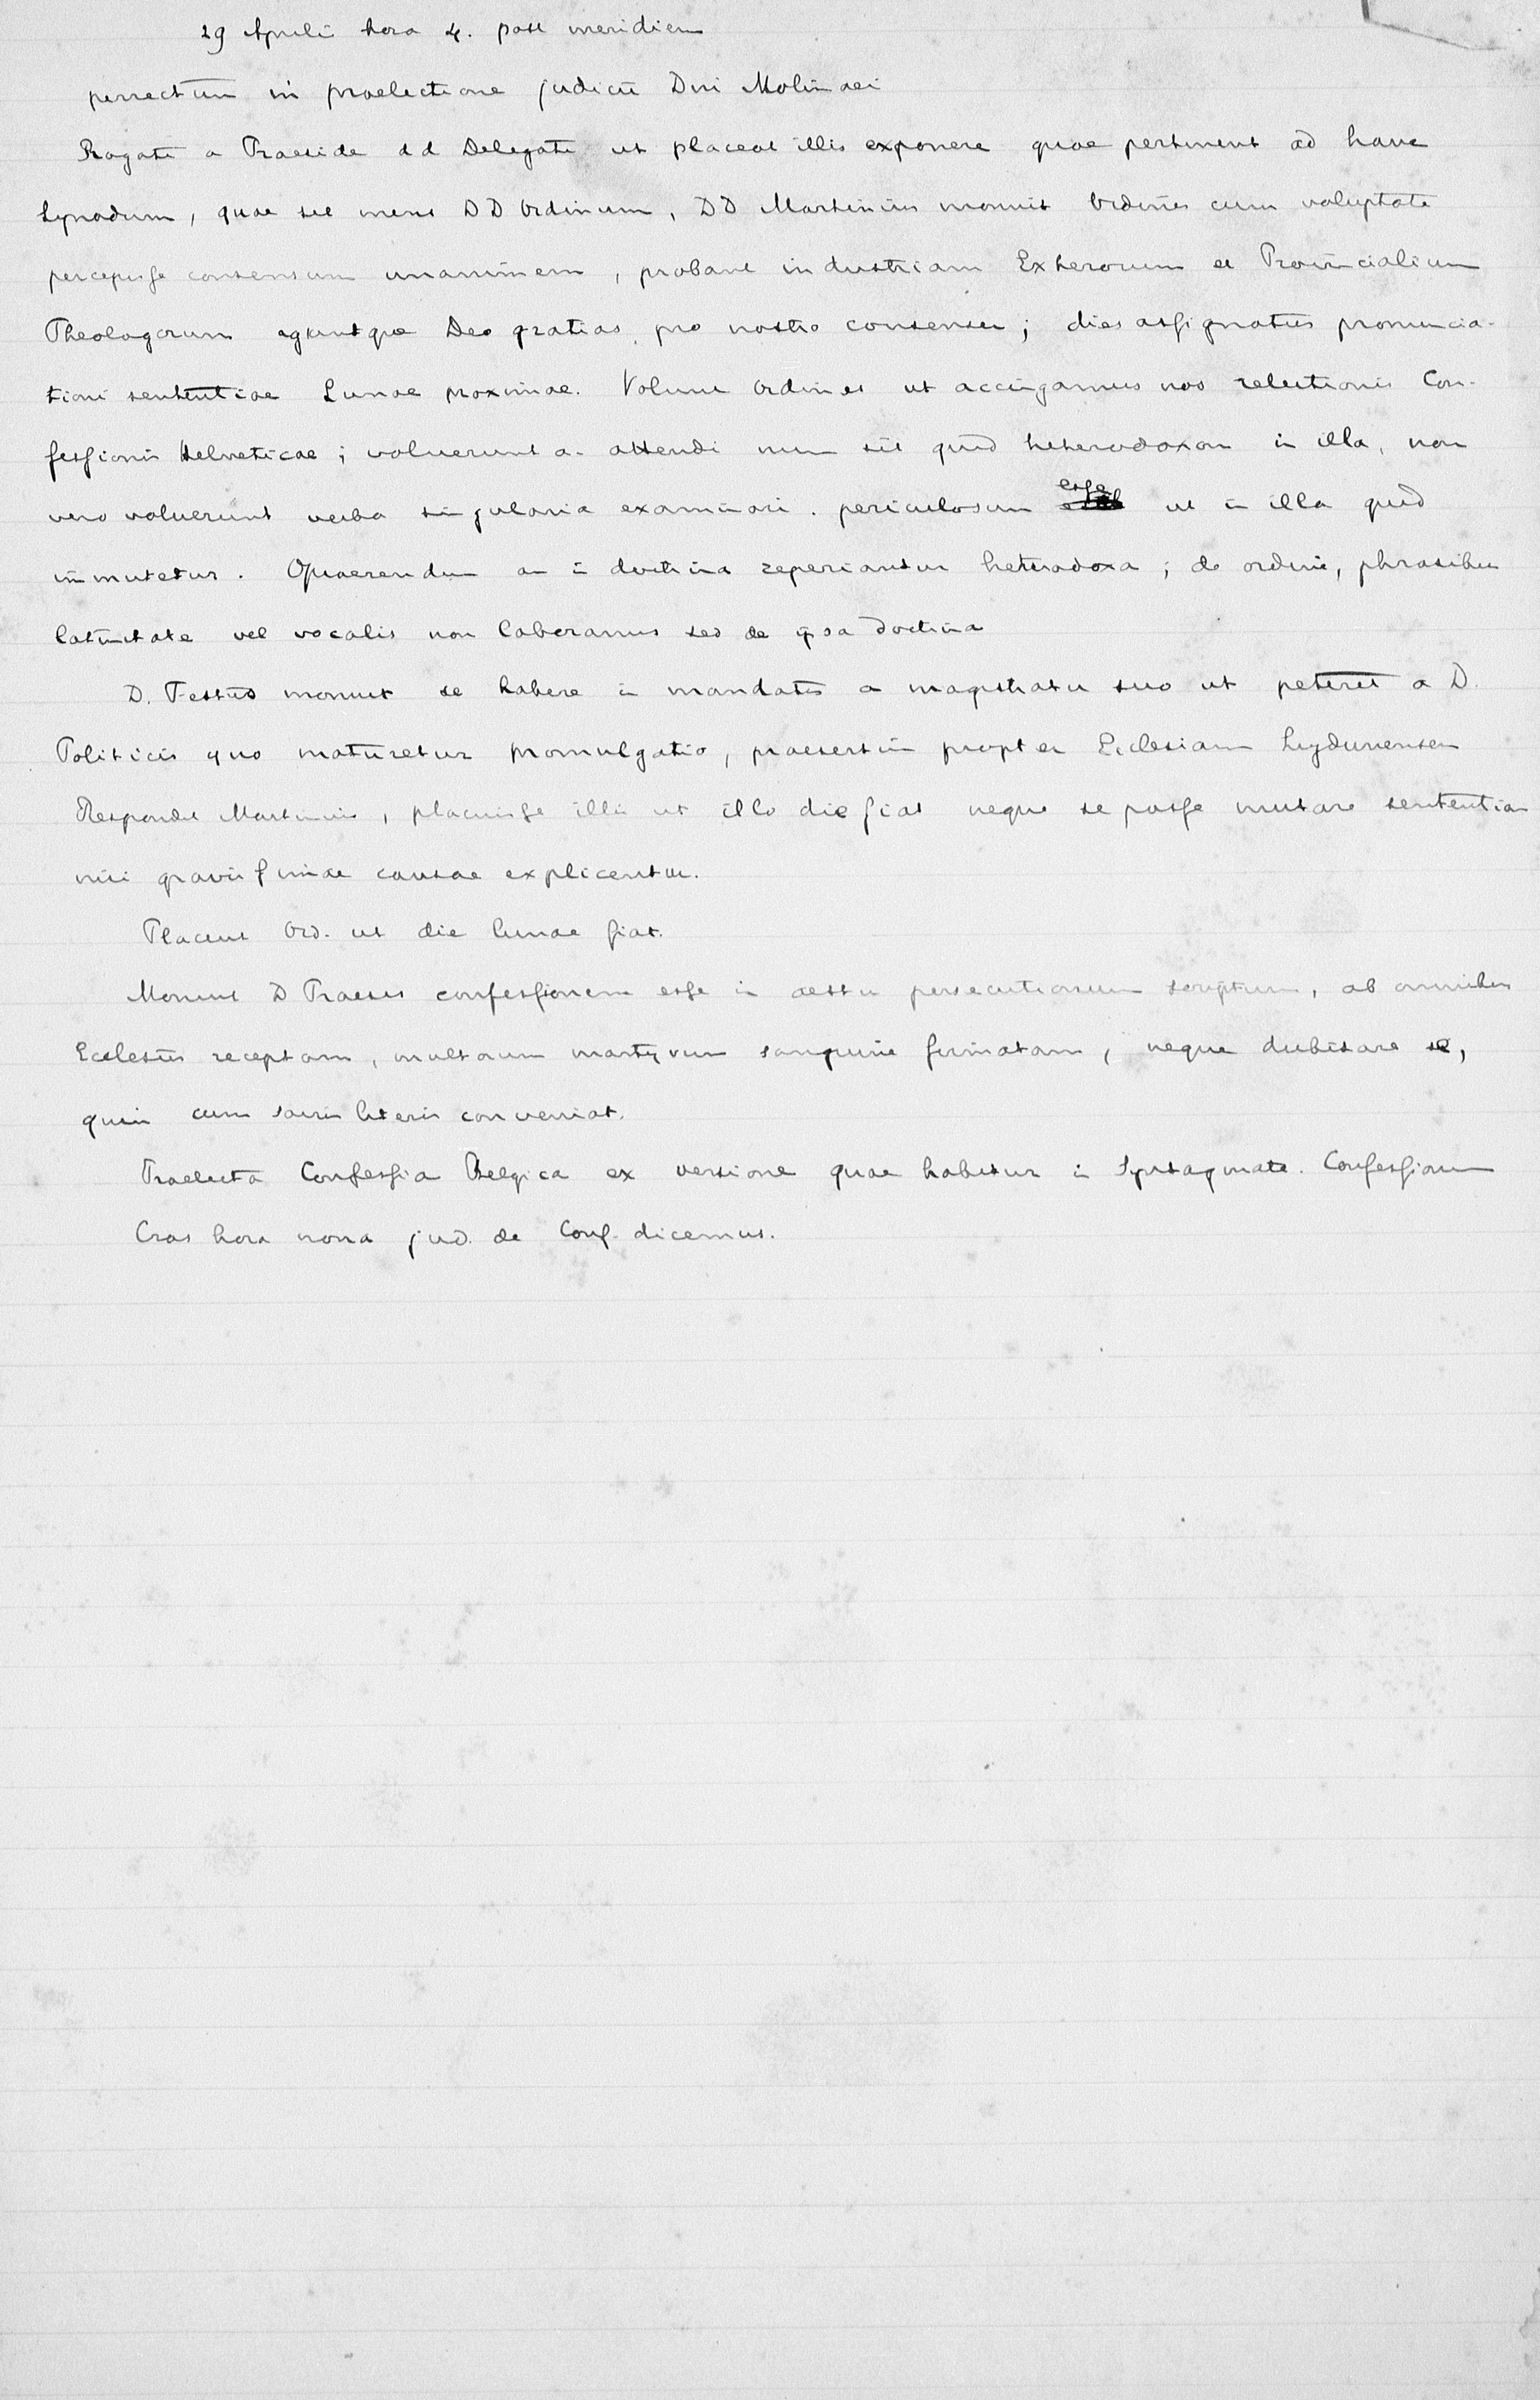 29 Aprili hora 4. post meridiem
perrectum in praelectione judicii Dni Molinaei
Rogati a Praeside dd Delegati ut placeat illis exponere quae pertinent ad hanc
Synodum, quae sit mens DD Ordinum, DD Martinius monuit Ordines cum voluptate
percepisse consensum unanimem, probant industriam Exterorum et Provincialium
Theologorum aguntque Deo gratias pro nostro consensu; dies assignatus pronuncia-
tioni sententiae Lunae proximae. Volunt Ordines ut accingamus nos relectionis Con-
fessionis Helveticae; voluerunt a. attendi num sit quid heterodoxon in illa, non
vero voluerunt verba singularia examinari. periculosum esse ut in illa quid
immutetur. Quaerendum an in doctrina reperiantur heterodoxa; de ordine, phrasibus
latinitate vel vocalis non laboramus sed de ipsa doctrina
D. Festus monuit se habere in mandatis a magistratu suo ut peteret a D.
Politicis quo maturetur promulgatio, praesertim propter Ecclesiam Lugdunensem
Respondit Martinius, placuisse illis ut illo die fiat neque se posse mutare sententiam
nisi gravissimae causae explicentur.
Placuit Ord. ut die lunae fiat.
Monuit D Praeses confessionem esse in aestu persecutionum scriptum, ab omnibus
Ecclesiis receptam, multorum martyrum sanguine firmatam, neque dubitare se,
quin cum sacris literis conveniat.
Praelecta Confessio Belgica ex versione quae habetur in Syntagmate. Confessionum
Cras hora nona jud. de Conf. dicemus.